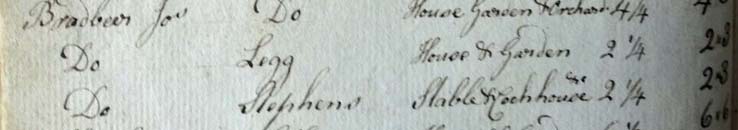 Bradbeer Jos Do House Garden & Orchard 4/4
Do Legg House & Garden 2 1/4 2=3
Do Stephens Stable & Cochhouse &c 2 1/4 2=3